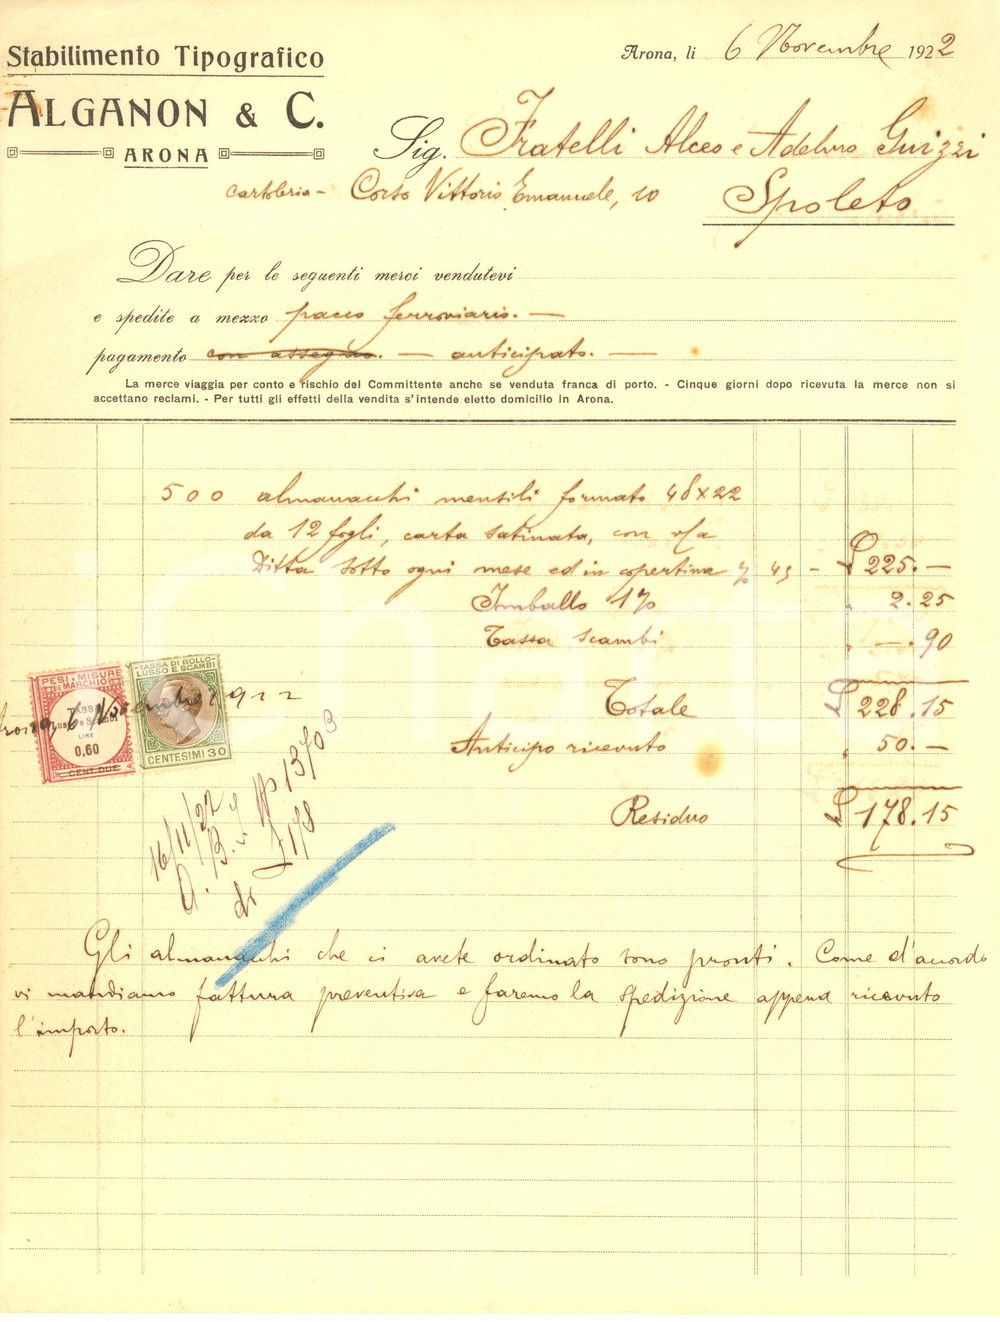 Stabilimento Tipografico
ALGANON & C.
ARONA
Arona, li 6 Novembre 1922
Sig. Fratelli Alceo e Adelmo Guizzi
cartoleria - Corso Vittorio Emanuele, 10 Spoleto
Dare per le seguenti merci vendutevi
e spedite a mezzo pacco ferroviario. —
pagamento con assegno. — anticipato. —
La merce viaggia per conto e rischio del Committente anche se venduta franca di porto. - Cinque giorni dopo ricevuta la merce non si
accettano reclami. - Per tutti gli effetti della vendita s'intende eletto domicilio in Arona.
500 almanacchi mensili formato 48x22
da 12 fogli, carta satinata, con v/a
Ditta sotto ogni mese ed in copertina % 45 - £ 225. —
Imballo 1% 2.25
Tassa scambi — .90
Totale £ 228.15
Anticipo ricevuto 50. —
Residuo £ 178.15
PESI E MISURE
E MARCHIO
TASSA
LIRE
0,60
CENT. DUE
TASSA DI BOLLO
LUSSO E SCAMBI
CENTESIMI 30
Arona, 6 Novembre 1922
16/11/22
Gli almanacchi che ci avete ordinato sono pronti. Come d'accordo
vi mandiamo fattura preventiva e faremo la spedizione appena ricevuto
l'importo.